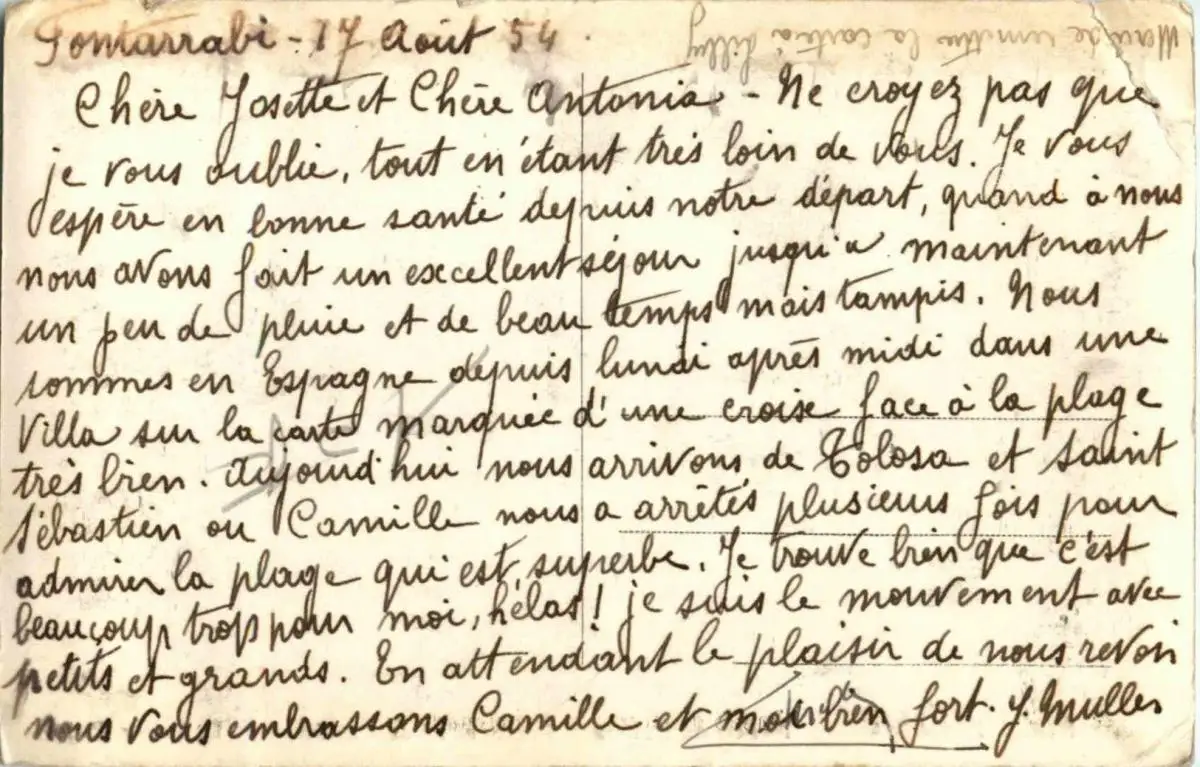 Fontarrabi - 17 Août 54.
Chère Josette et Chère Antonia - Ne croyez pas que
je vous oublie, tout en étant très loin de vous. Je vous
espère en bonne santé depuis notre départ, quand à nous
nous avons fait un excellent séjour jusqu'a maintenant
un peu de pluie et de beau temps mais tampis. Nous
sommes en Espagne depuis lundi après midi dans une
Villa sur la carte marquée d'une croise face à la plage
très bien. Aujourd'hui nous arrivons de Tolosa et Saint
Sébastien ou Camille nous a arrêtés plusieurs fois pour
admirer la plage qui est superbe. Je trouve bien que c'est
beaucoup trop pour moi, hélas! je suis le mouvement avec
petits et grands. En attendant le plaisir de nous revoir
nous vous embrassons Camille et moi bien fort. J. Muller
de remettre la carte à